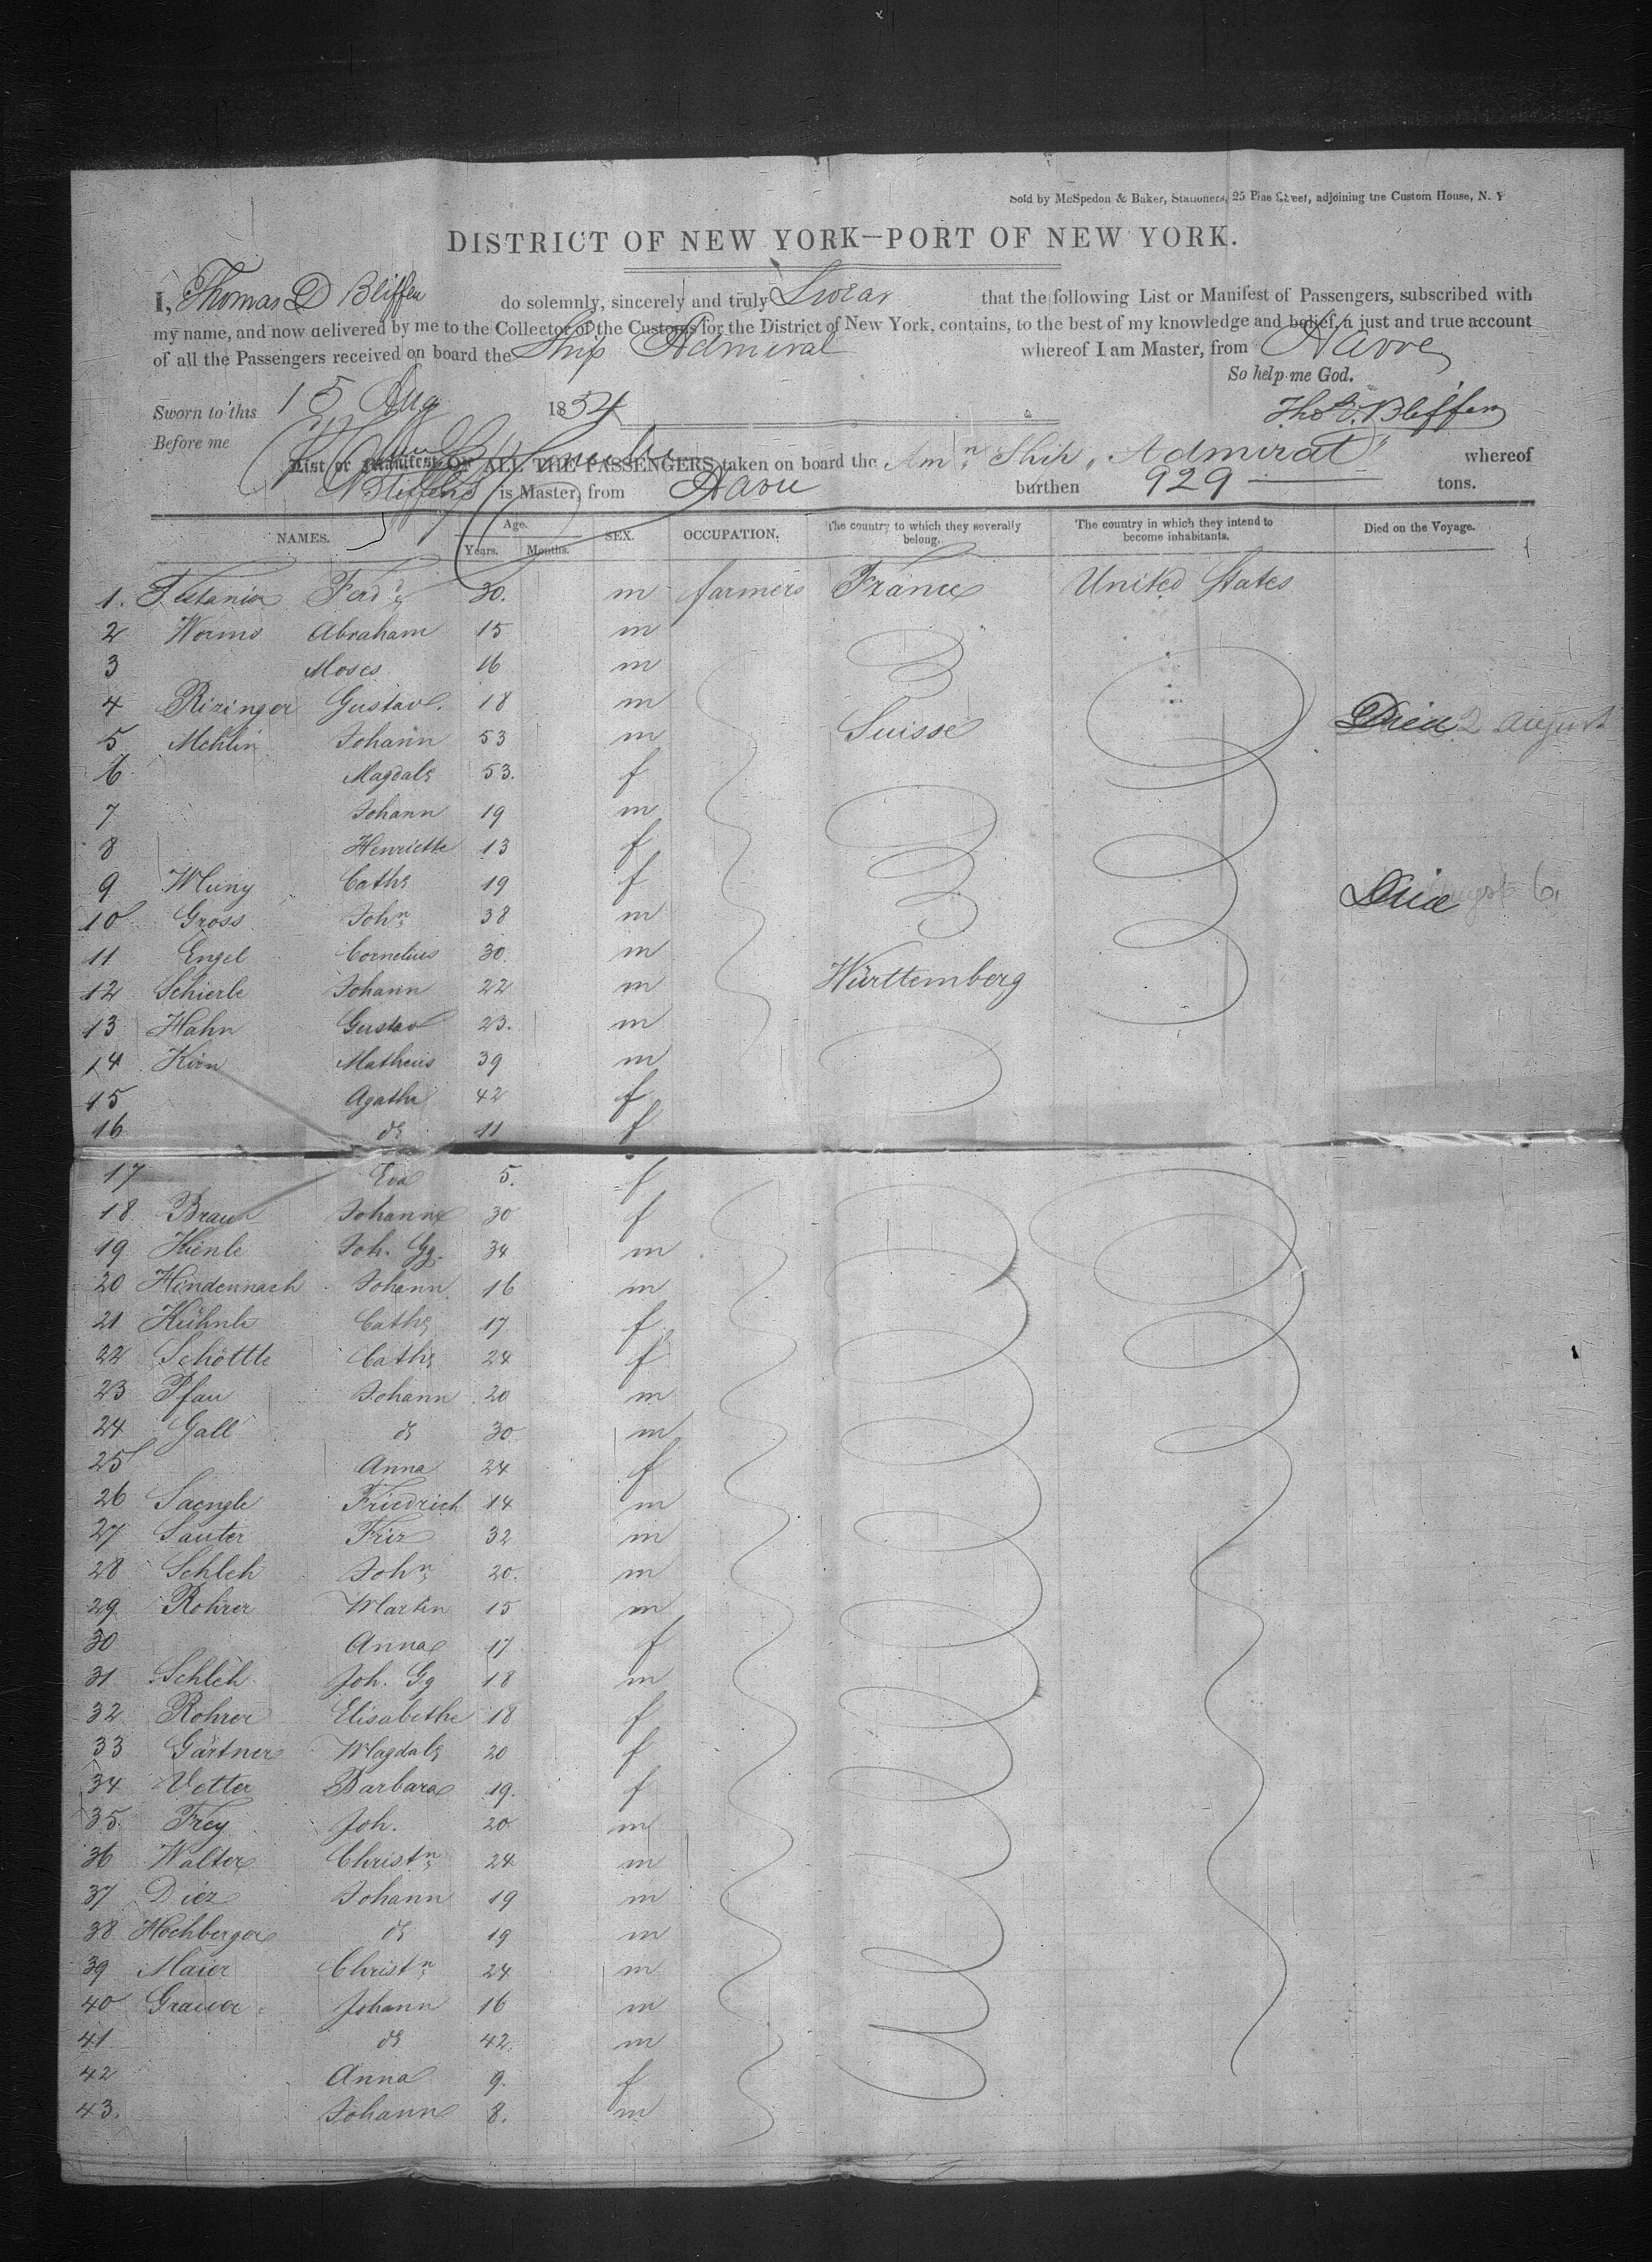 Sold by McSpedon & Baker, Stationers, 25 Pine Street, adjoining the Custom House, N. Y
DISTRICT OF NEW YORK—PORT OF NEW YORK.
I, Thomas D Bliffen do solemnly, sincerely and truly Swear that the following List or Manifest of Passengers, subscribed with
my name, and now delivered by me to the Collector of the Customs for the District of New York, contains, to the best of my knowledge and belief, a just and true account
of all the Passengers received on board the Ship Admiral whereof I am Master, from Havre
So help me God.
Sworn to this 15 Aug 1854
Thos D. Bliffen
Before me
List or Manifest OF ALL THE PASSENGERS taken on board the Amn Ship Admiral whereof
Bliffens is Master, from Havre burthen 929 tons.
NAMES. Age. Years. Months. SEX. OCCUPATION. The country to which they severally belong. The country in which they intend to become inhabitants. Died on the Voyage.
1. Ferdd 30. m farmers France United States
2 Worms Abraham 15 m
3 Moses 16 m
4 Rizinger Gustave. 18 m
5 Mehlin Johann 53 m Suisse Died 2 August
6 Magdale 53. f
7 Johann 19 m
8 Henriette 13 f
9 Cathe 19 f
10 Gross John 38 m Died August 6.
11 Engel Cornelius 30. m
12 Schierle Johann 22 m Württemberg
13 Hahn Gustav 23. m
14 Kirn Matheus 39 m
15 Agathe 42 f
16 do 11 f
17 Eva 5. f
18 Braun Johanne 30 f
19 Kienle Joh. Gg. 34 m
20 Hindennach Johann 16 m
21 Kühnle Cathe 17 f
22 Schöttle Cathe 24 f
23 Pfau Johann 20 m
24 Gall do 30 m
25 Anna 24 f
26 Saengle Friedrich 14 m
27 Sauter Frz 32 m
28 Schleh John 20. m
29 Rohrer Martin 15 m
30 Anna 17 f
31 Schleh Joh. Gg 18 m
32 Rohrer Elisabethe 18 f
33 Gärtner Magdale 20 f
34 Vetter Barbara 19. f
35. Frey Joh. 20 m
36 Walter Christn 24 m
37 Diez Johann 19 m
38 Hochberger do 19 m
39 Maier Christn 24 m
40 Grauer Johann 16 m
41 do 42. m
42 Anna 9. f
43. Johann 8. m